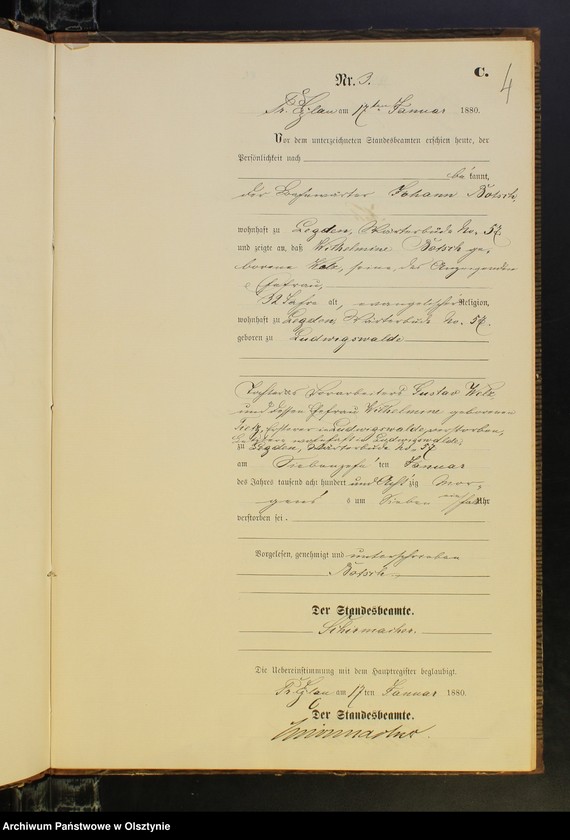 C.
4
Nr. 3.
Pr. Eylau am 17ten Januar 1880.
Vor dem unterzeichneten Standesbeamten erschien heute, der
Persönlichkeit nach
bekannt,
der Bahnwärter Johann Bötsch
wohnhaft zu Legden, Wärterbude No. 57
und zeigte an, daß Wilhelmine Bötsch ge-
borene, seine, des Anzeigenden
Ehefrau,
32 Jahre alt, evangelischer Religion,
wohnhaft zu Legden, Wärterbude No. 57
geboren zu Ludwigswalde
Tochter des Vorarbeiters Gustav
und dessen Ehefrau Wilhelmine geborenen
ersterer in Ludwigswalde verstorben,
letztere wohnhaft in Ludwigswalde,
zu Legden, Wärterbude No. 57
am Siebenzehnten Januar
des Jahres tausend acht hundert und Achtzig Mor-
gens um Sieben einhalb Uhr
verstorben sei.
Vorgelesen, genehmigt und unterschrieben
Bötsch
Der Standesbeamte.
Schirmacher.
Die Uebereinstimmung mit dem Hauptregister beglaubigt.
Pr. Eylau am 17ten Januar 1880.
Der Standesbeamte.
Schirmacher.
Archiwum Państwowe w Olsztynie